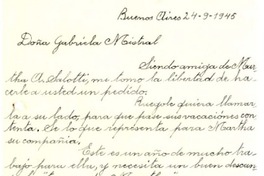 Buenos Aires 24-9-1945
Doña Gabriela Mistral
Siendo amiga de Mar-
tha A. Salotti, me tomo la libertad de ha-
cerle a usted un pedido.
Ruégole quiera llamar-
la a su lado, para que pase sus vacaciones con-
tenta. Se lo que representa para Martha
su compañía.
Este es un año de mucho tra-
bajo para ella, y necesita un buen descan-